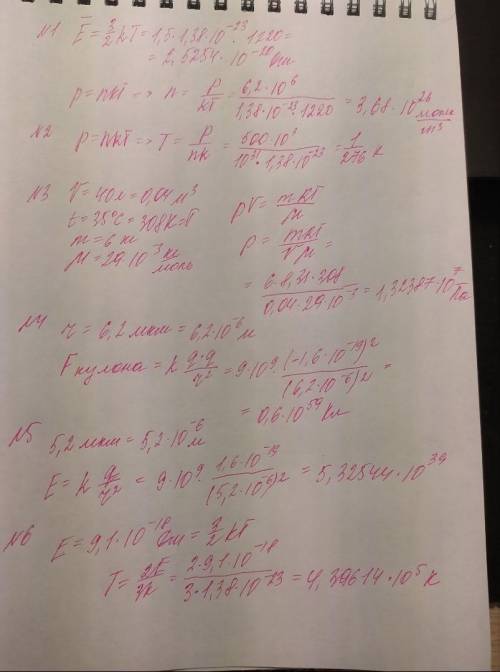 №1 Ē = 3/2 kT = 1,5·1,38·10⁻²³·1220 =
= 2,5254·10⁻²⁰ Дж
p = nkT => n = p/kT = 6,2·10⁶/1,38·10⁻²³·1220 = 3,68·10²⁶ молек/м³
№2 p = nkT => T = p/nk = 500·10³/10³¹·1,38·10⁻²³ = 1/276 K
№3 V = 40л = 0,04 м³
t = 35°C = 308K = T
m = 6 кг
μ = 29·10⁻³ кг/моль
pV = mRT/μ
p = mRT/Vμ =
= 6·8,31·308/0,04·29·10⁻³ = 1,32387·10⁷ Па
№4 r = 6,2 мкм = 6,2·10⁻⁶ м
F кулона = k q·q/r² = 9·10⁹·(-1,6·10⁻¹⁹)²/(6,2·10⁻⁶)² =
= 0,6·10⁵⁹ Кл
№5 5,2 мкм = 5,2·10⁻⁶ м
E = k q/r² = 9·10⁹·1,6·10⁻¹⁹/(5,2·10⁻⁶)² = 5,32544·10³⁹
№6 E = 9,1·10⁻¹⁸ Дж = 3/2 kT
T = 2E/3k = 2·9,1·10⁻¹⁸/3·1,38·10⁻²³ = 4,39614·10⁵ K